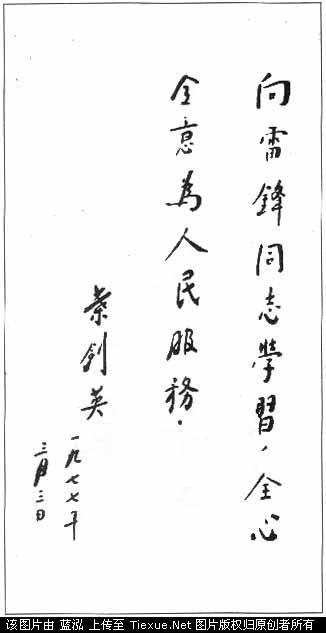 向雷鋒同志學習，全心
全意為人民服務．
葉劍英
一九七七年
三月三日
该图片由 蓝泓 上传至 Tiexue.Net 图片版权归原创者所有